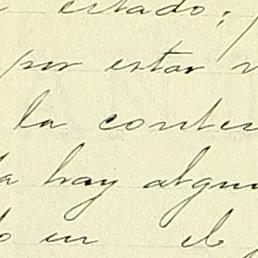 estado;
por estar
la contes
hay algun
en el